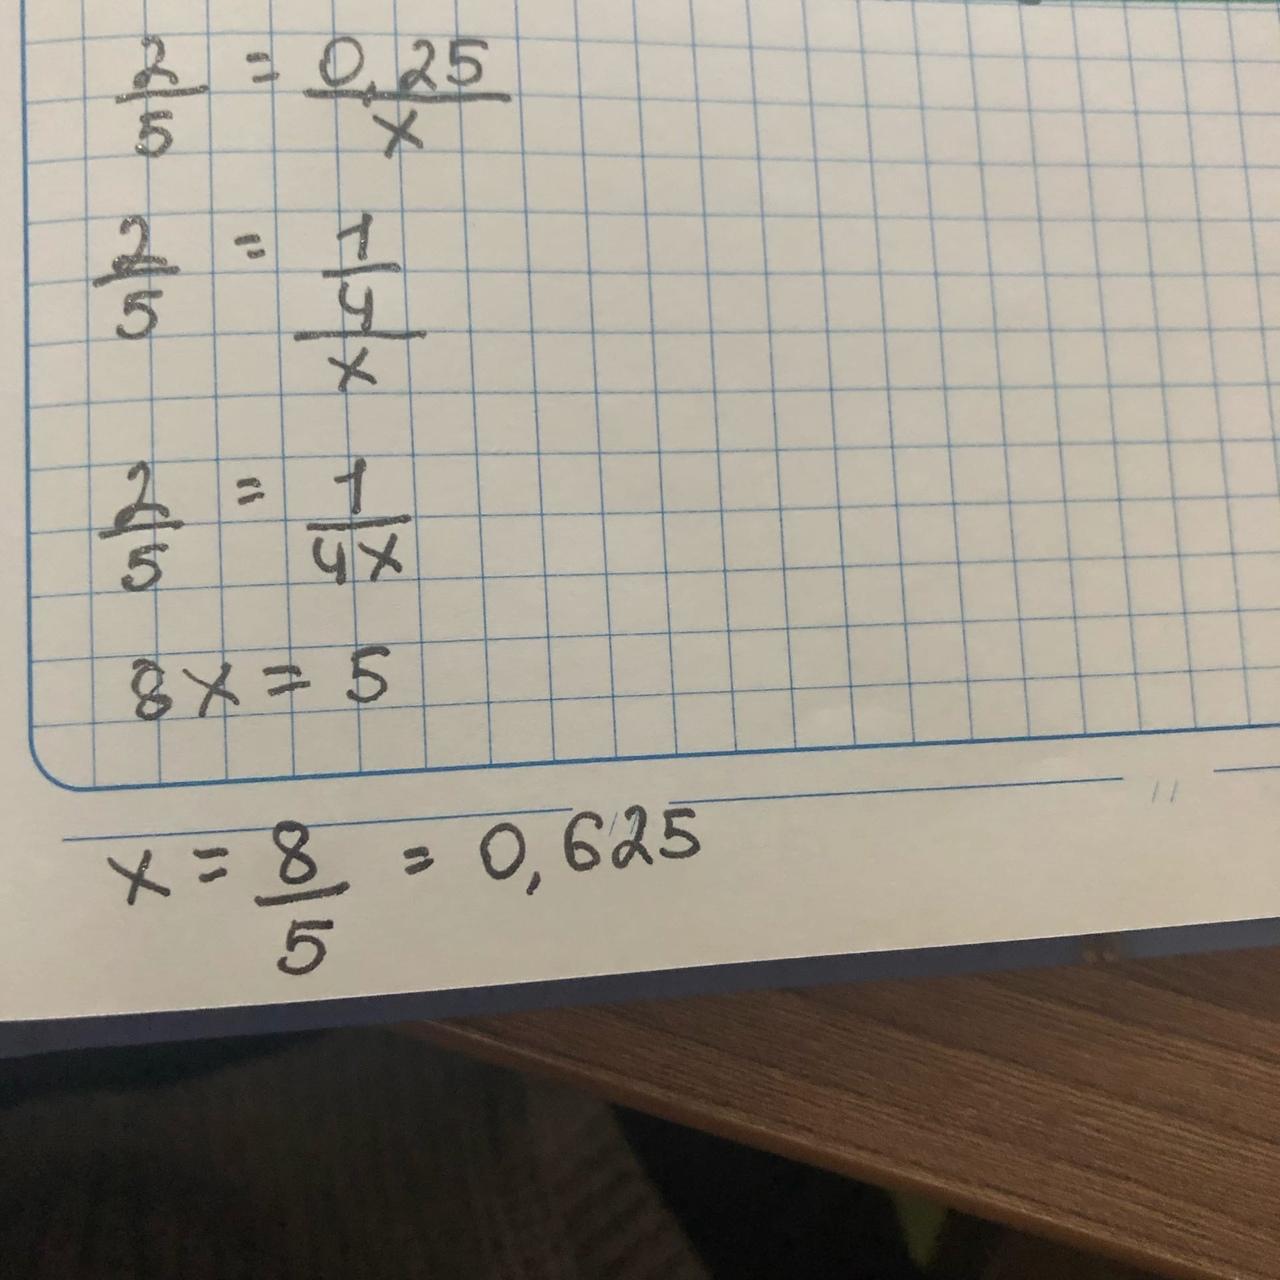 2/5 = 0,25/x
2/5 = 1/4/x
2/5 = 1/4x
8x = 5
x = 8/5 = 0,625